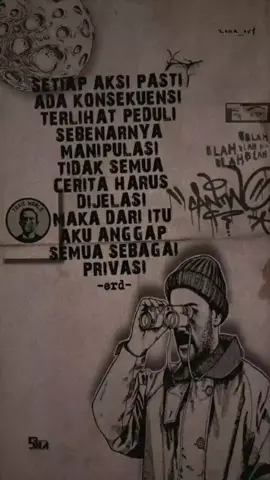 SETIAP AKSI PASTI
ADA KONSEKUENSI
TERLIHAT PEDULI
SEBENARNYA
MANIPULASI
TIDAK SEMUA
CERITA HARUS
DIJELASI
MAKA DARI ITU
AKU ANGGAP
SEMUA SEBAGAI
PRIVASI
-erd-
BLAH
BLAH BLAH
BLAHBLAH